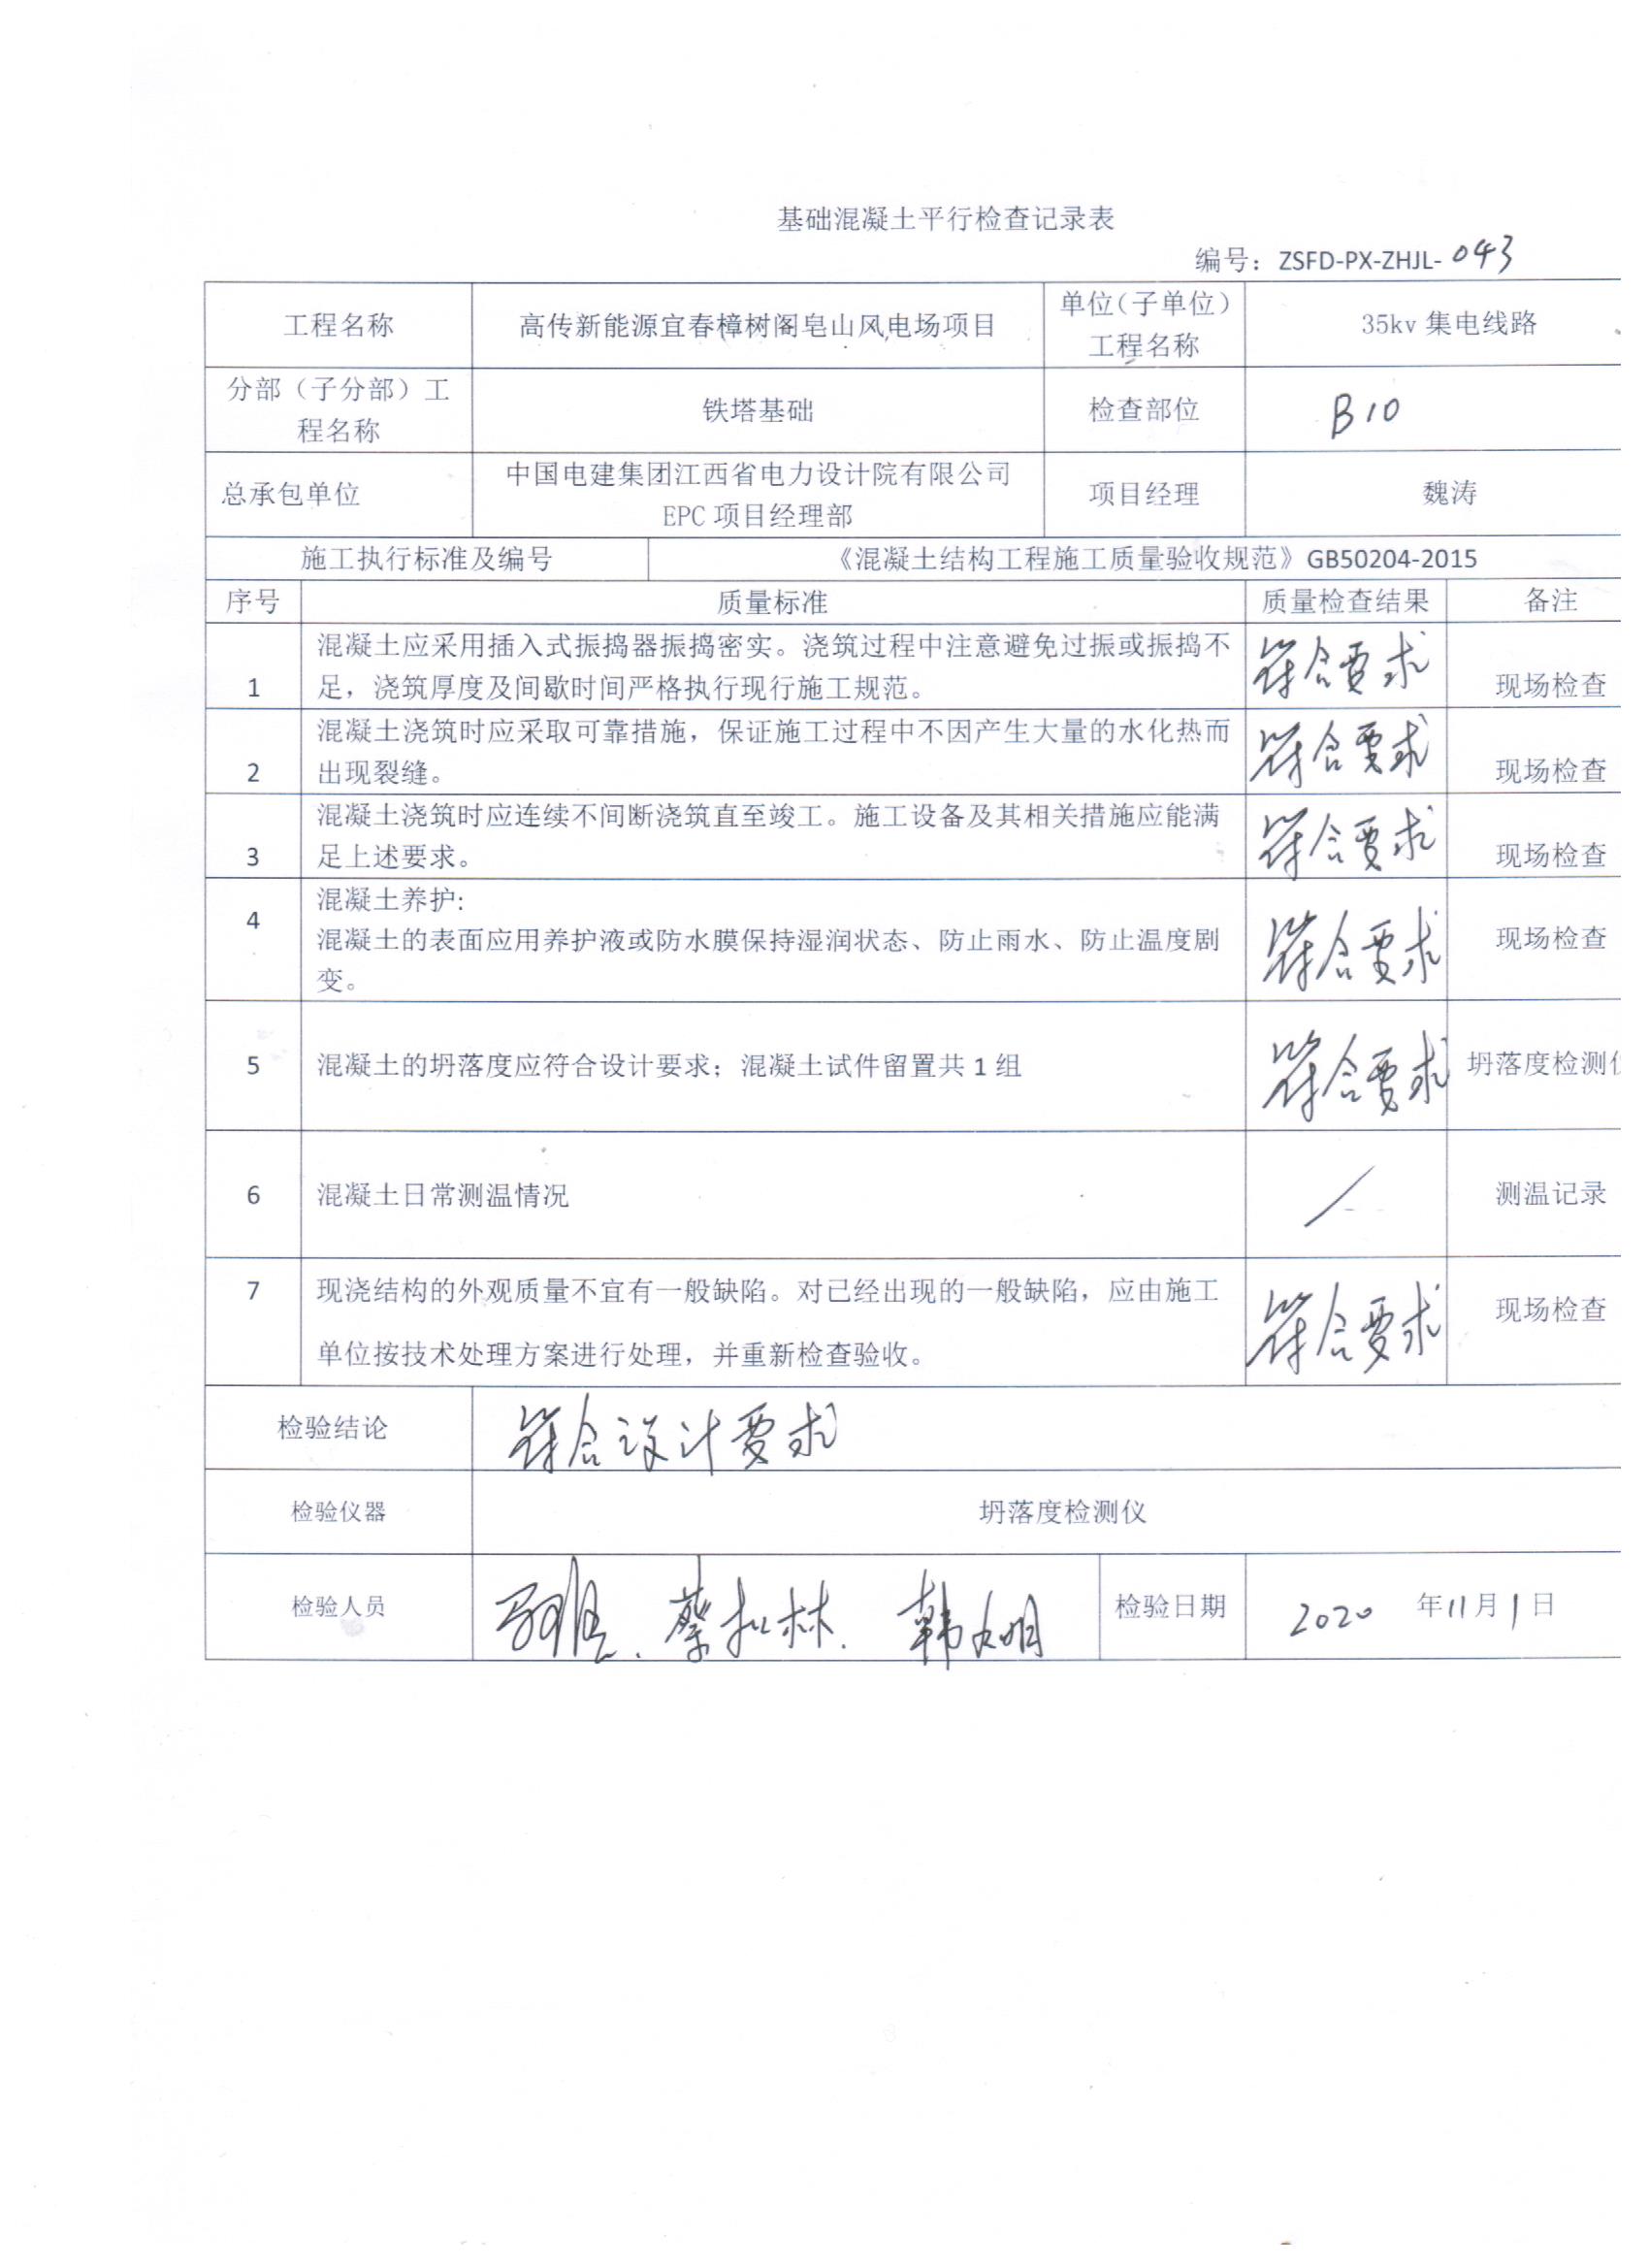 基础混凝土平行检查记录表
编号：ZSFD-PX-ZHJL-043
工程名称 高传新能源宜春樟树阁皂山风电场项目 单位（子单位）工程名称 35kv 集电线路
分部（子分部）工程名称 铁塔基础 检查部位 B10
总承包单位 中国电建集团江西省电力设计院有限公司
EPC 项目经理部 项目经理 魏涛
施工执行标准及编号 《混凝土结构工程施工质量验收规范》GB50204-2015
序号 质量标准 质量检查结果 备注
1 混凝土应采用插入式振捣器振捣密实。浇筑过程中注意避免过振或振捣不
足，浇筑厚度及间歇时间严格执行现行施工规范。 符合要求 现场检查
2 混凝土浇筑时应采取可靠措施，保证施工过程中不因产生大量的水化热而
出现裂缝。 符合要求 现场检查
3 混凝土浇筑时应连续不间断浇筑直至竣工。施工设备及其相关措施应能满
足上述要求。 符合要求 现场检查
4 混凝土养护:
混凝土的表面应用养护液或防水膜保持湿润状态、防止雨水、防止温度剧
变。 符合要求 现场检查
5 混凝土的坍落度应符合设计要求；混凝土试件留置共 1 组 符合要求 坍落度检测
6 混凝土日常测温情况 / 测温记录
7 现浇结构的外观质量不宜有一般缺陷。对已经出现的一般缺陷，应由施工
单位按技术处理方案进行处理，并重新检查验收。 符合要求 现场检查
检验结论 符合设计要求
检验仪器 坍落度检测仪
检验人员 检验日期 2020 年 11 月 1 日